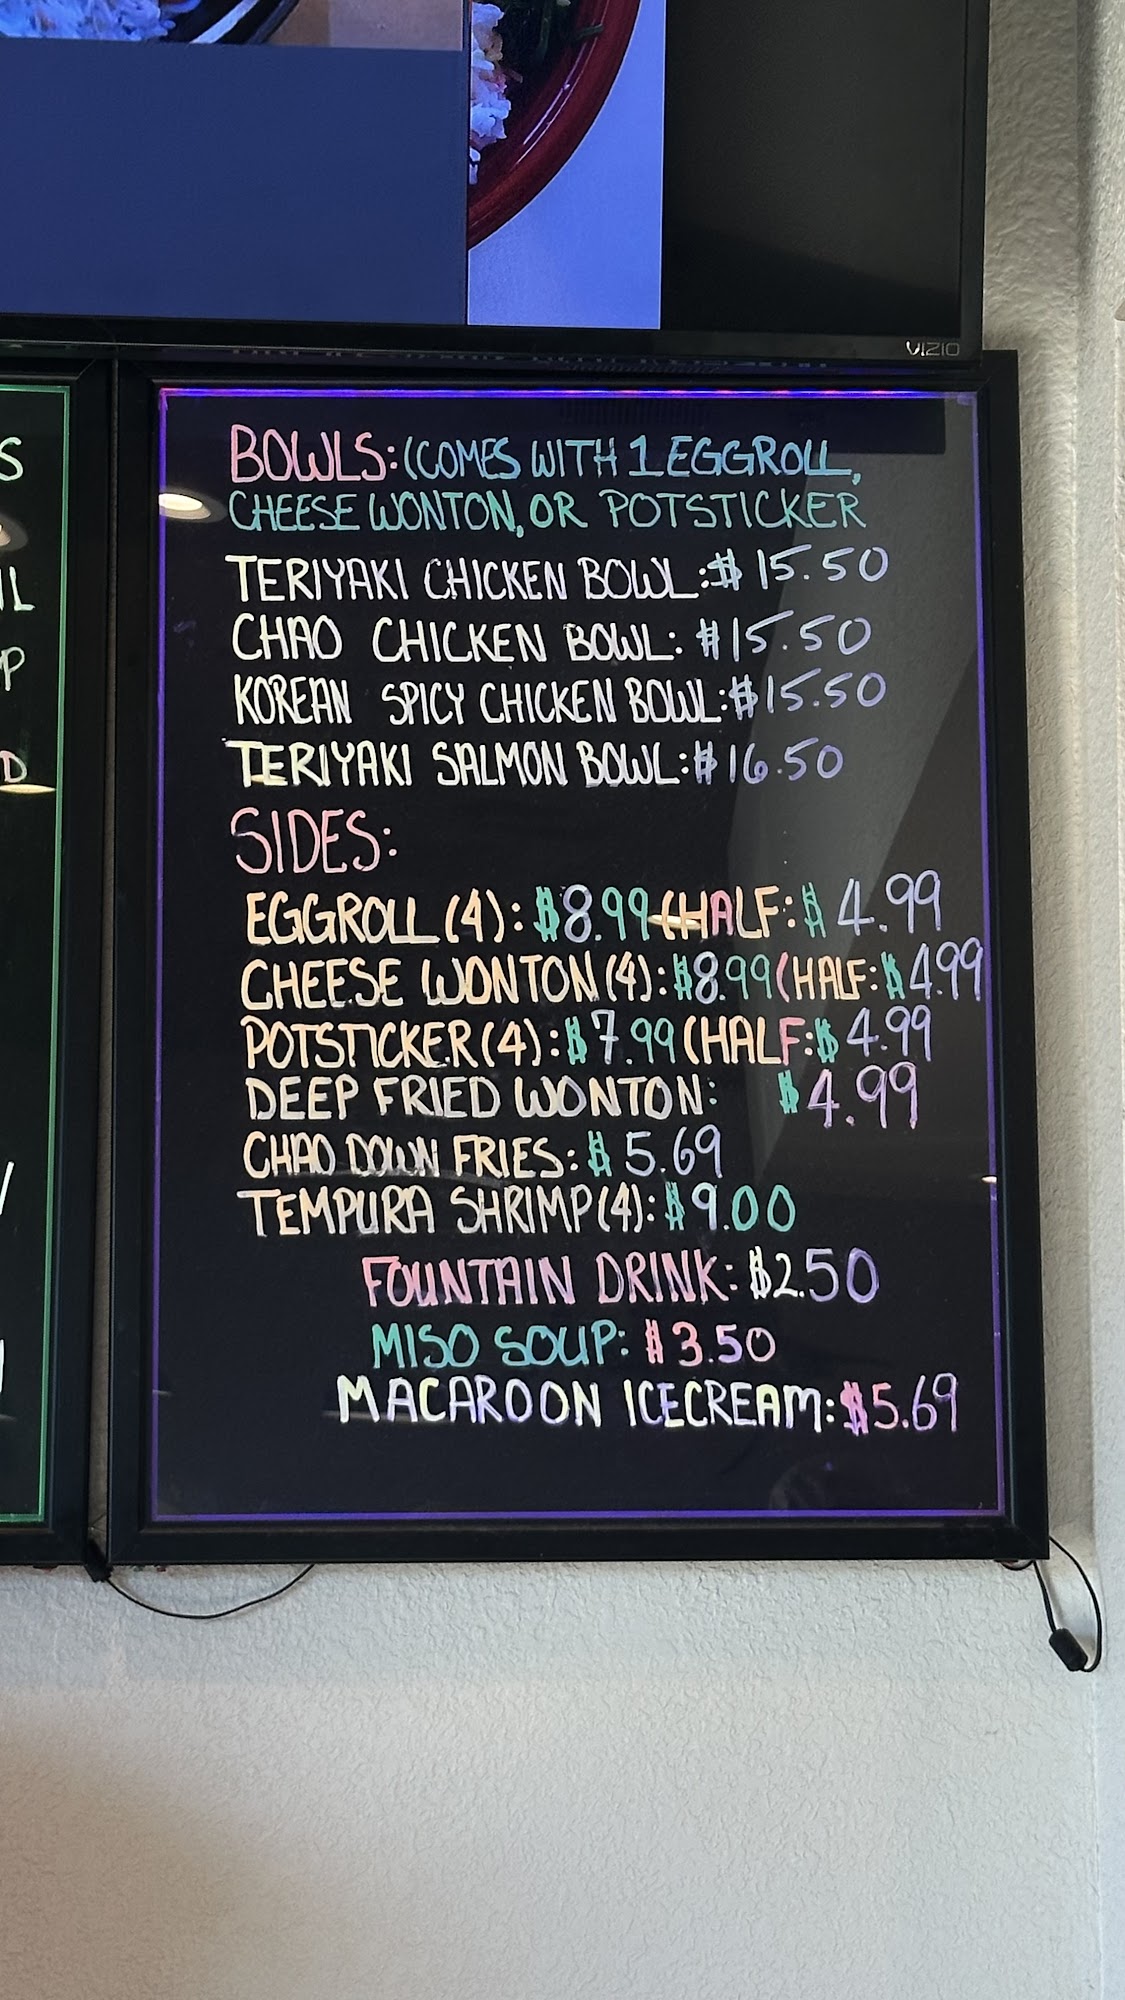 VIZIO
S
IL
P
D
BOWLS: (COMES WITH 1 EGGROLL,
CHEESE WONTON, OR POTSTICKER
TERIYAKI CHICKEN BOWL: $15.50
CHAO CHICKEN BOWL: $15.50
KOREAN SPICY CHICKEN BOWL: $15.50
TERIYAKI SALMON BOWL: $16.50
SIDES:
EGGROLL (4): $8.99 (HALF: $4.99
CHEESE WONTON (4): $8.99 (HALF: $4.99
POTSTICKER (4): $7.99 (HALF: $4.99
DEEP FRIED WONTON: $4.99
CHAO DOWN FRIES: $5.69
TEMPURA SHRIMP (4): $9.00
FOUNTAIN DRINK: $2.50
MISO SOUP: $3.50
MACAROON ICECREAM: $5.69